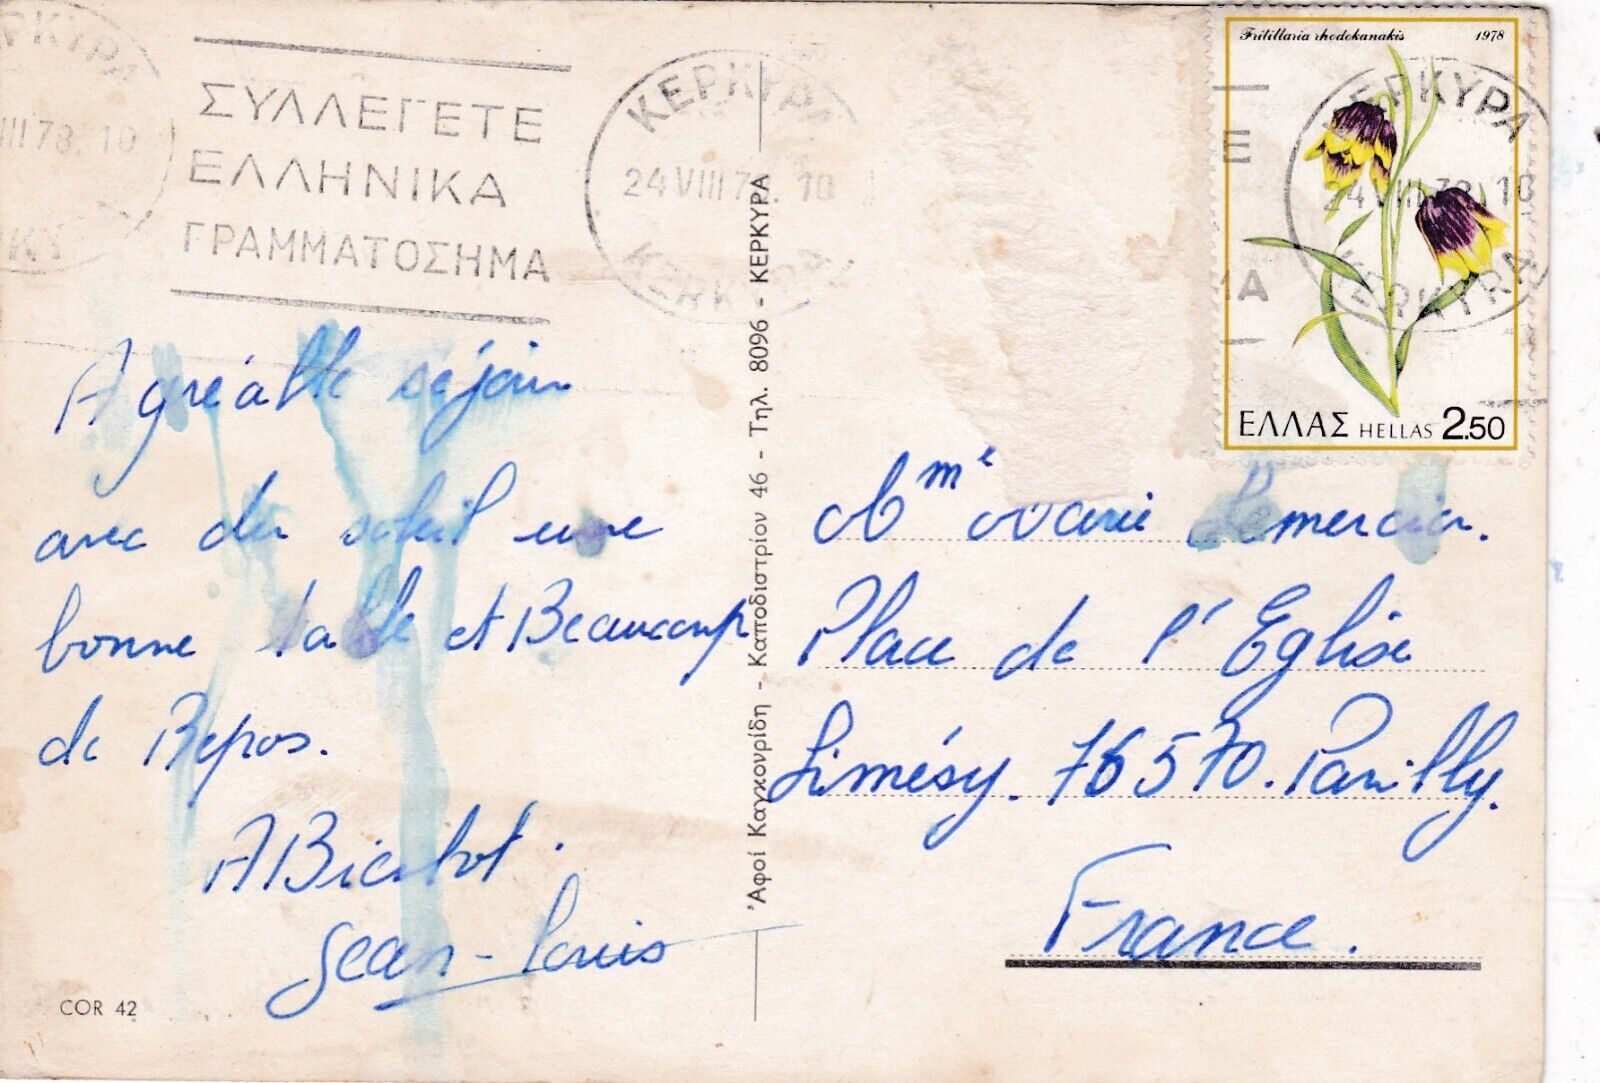 ΚΕΡΚΥΡΑ
VIII 78. 10
ΣΥΛΛΕΓΕΤΕ
ΕΛΛΗΝΙΚΑ
ΓΡΑΜΜΑΤΟΣΗΜΑ
ΚΕΡΚΥΡΑ
24 VIII 78. 10
KERKYRA
Agréable séjour
avec du soleil une
bonne table et Beaucoup
de Repos.
Jean-Louis
COR 42
Ἀφοί Καγκουρίδη - Καποδιστρίου 46 - Τηλ. 8096 - ΚΕΡΚΥΡΑ
Fritillaria rhodokanakis 1978
ΚΕΡΚΥΡΑ
24 VIII 78. 10
KERKYRA
Ε
ΜΑ
ΕΛΛΑΣ HELLAS 2.50
Mme Marie Lemercier.
Place de l'Eglise
Limésy. 76570. Pavilly.
France.